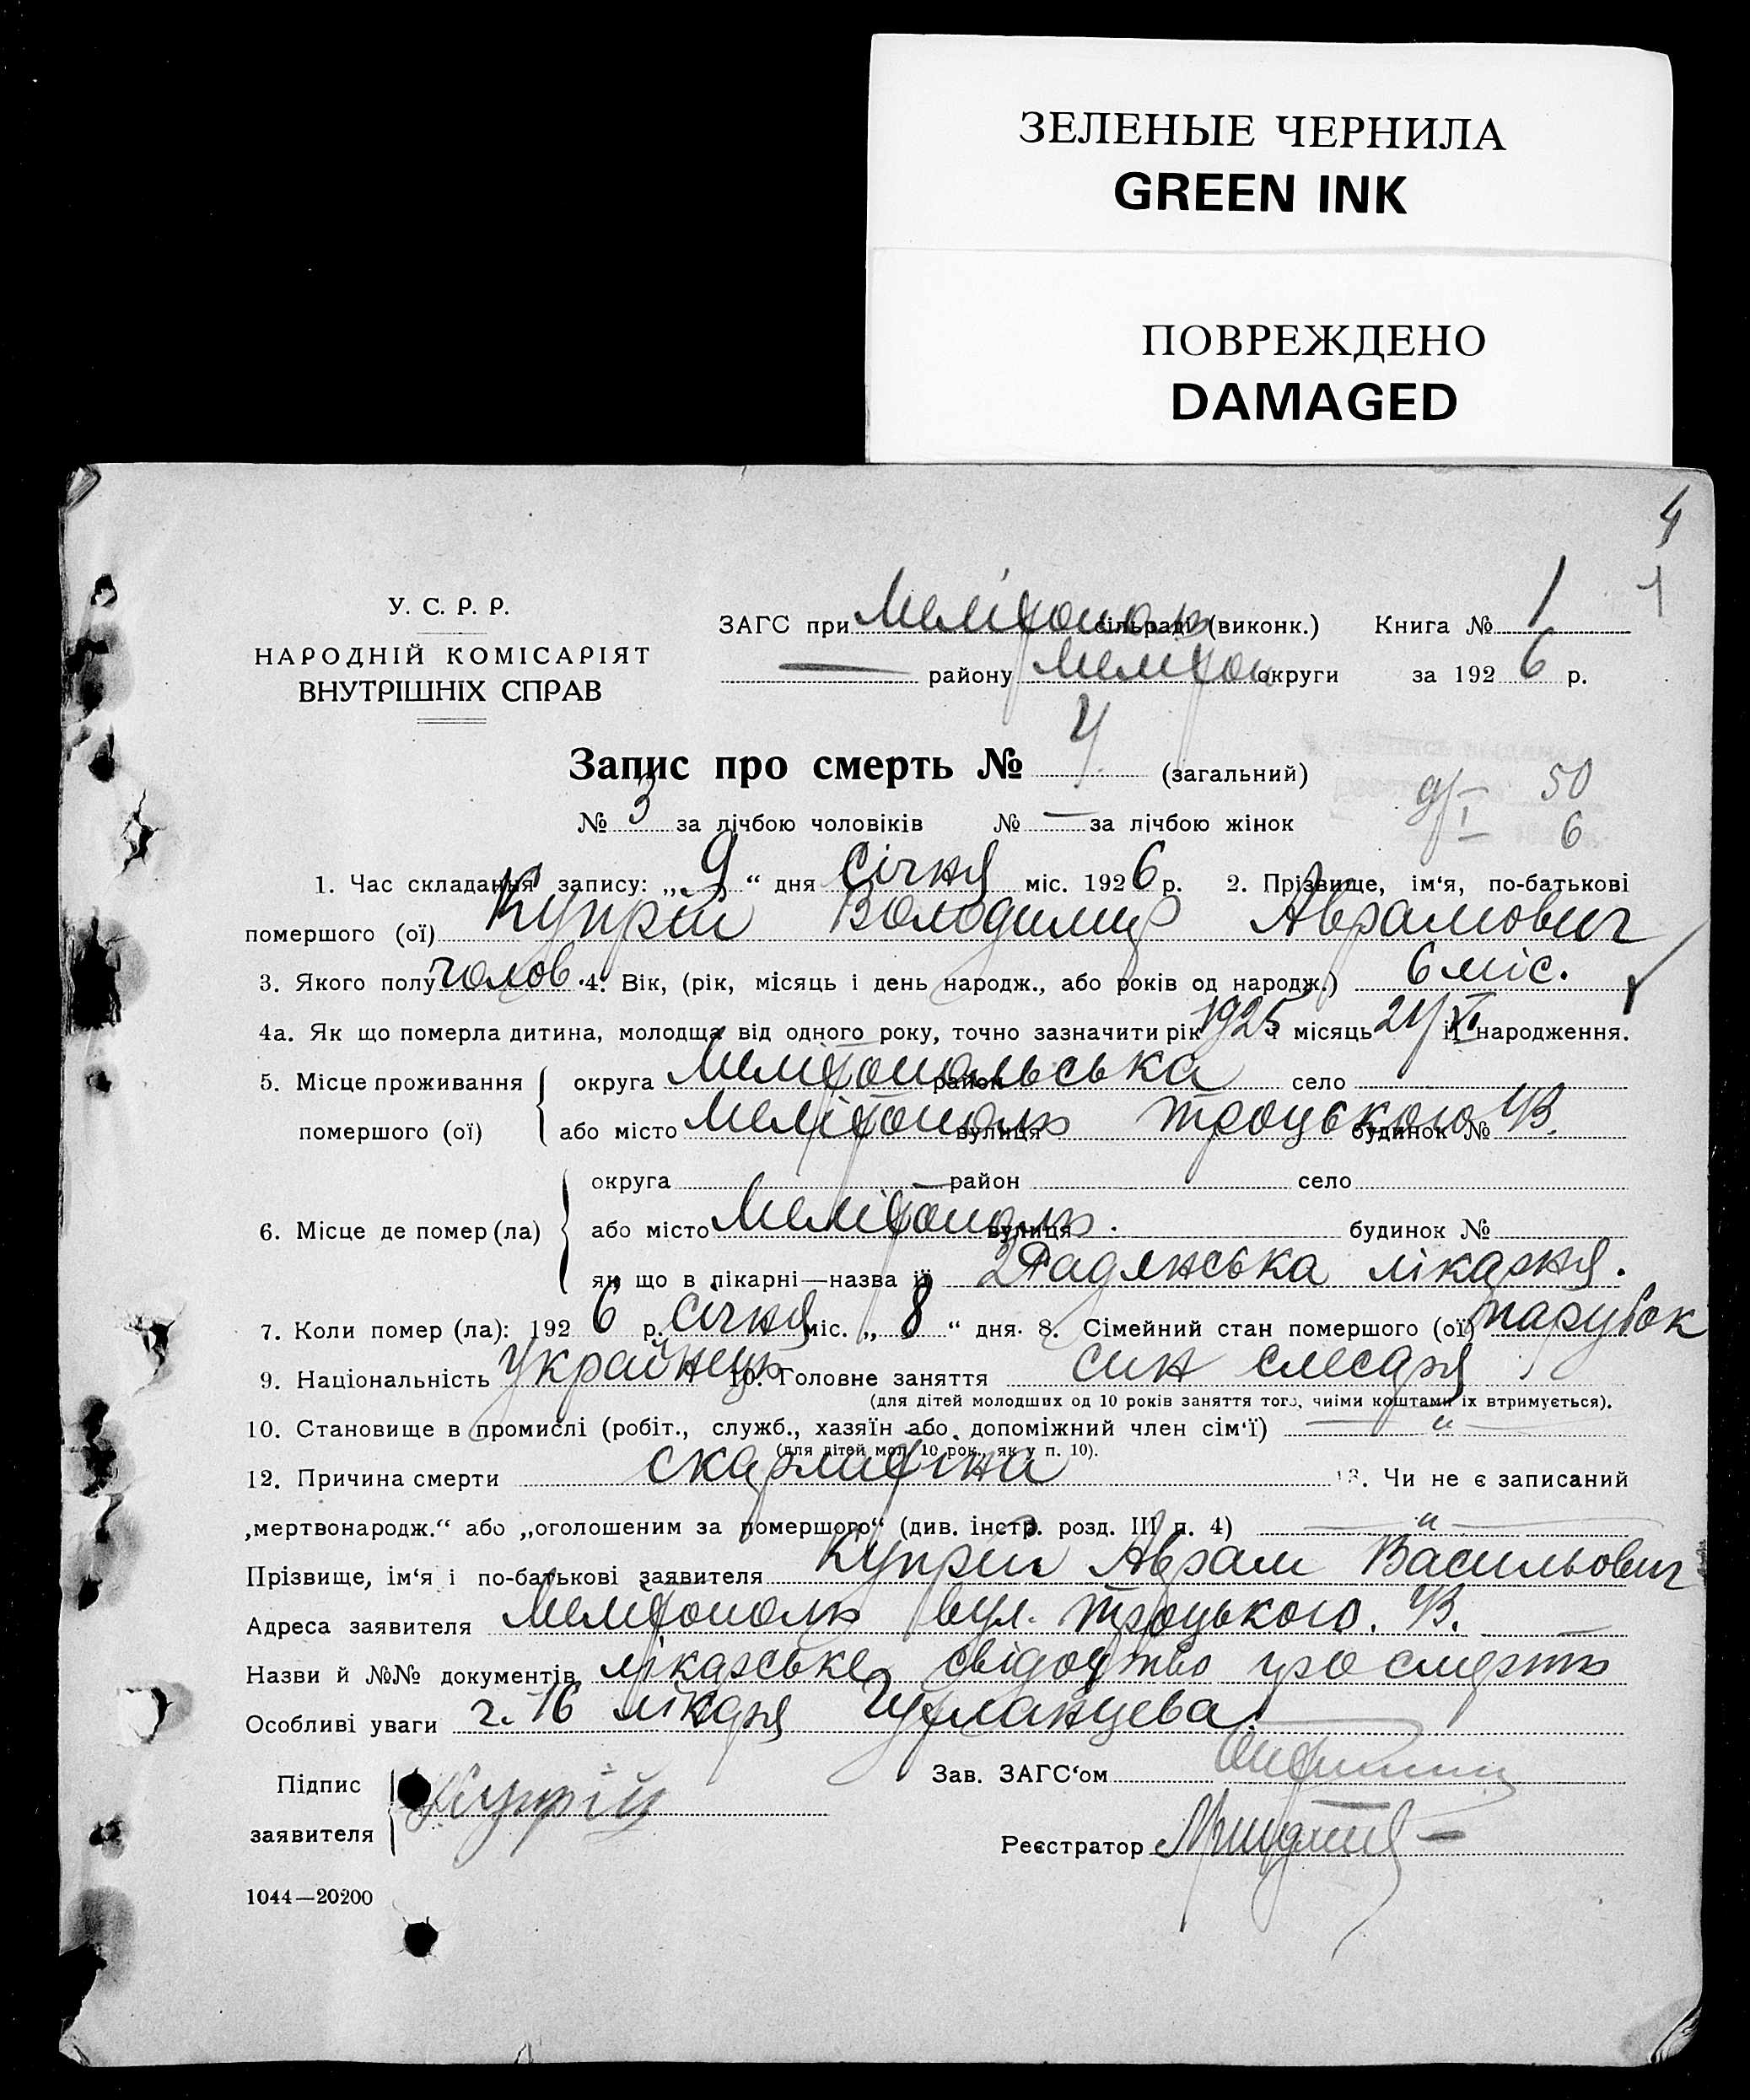 ЗЕЛЕНЫЕ ЧЕРНИЛА
GREEN INK
ПОВРЕЖДЕНО
DAMAGED
4
У. С. Р. Р.
НАРОДНІЙ КОМІСАРІЯТ
ВНУТРІШНІХ СПРАВ
ЗАГС при Мелітополь сільраді (виконк.) Книга № 1 1
— району Мелітоп округи за 1926 р.
Запис про смерть № 4 (загальний)
№ 3 за лічбою чоловіків № — за лічбою жінок
9/I 50
6
1. Час складання запису: „9“ дня Січня міс. 1926 р. 2. Прізвище, ім‘я, по-батькові
помершого (ої) Купрій Володимир Аврамович
3. Якого полу чолов. 4. Вік, (рік, місяць і день народж., або років од народж.) 6 міс.
4а. Як що померла дитина, молодща від одного року, точно зазначити рік 1925 місяць 24/VI її народження.
5. Місце проживання округа Мелітопольська район село
помершого (ої) або місто Мелітополь вулиця Троцького будинок № 43.
округа — район село
6. Місце де помер (ла) або місто Мелітополь. вулиця будинок №
як що в лікарні—назва її 2 Радянська лікарня.
7. Коли помер (ла): 1926 р. Січня міс. „8“ дня. 8. Сімейний стан помершого (ої) парубок
9. Національність Українець 10. Головне заняття син слесаря
(для дітей молодших од 10 років заняття того, чиїми коштами їх втримується).
10. Становище в промислі (робіт., служб., хазяїн або допоміжний член сім‘ї) — „ —
(для дітей мол. 10 рок., як у п. 10).
12. Причина смерти скарлатина 13. Чи не є записаний
„мертвонародж.“ або „оголошеним за померщого“ (див. інстр. розд. III п. 4) — „ —
Прізвище, ім‘я і по-батькові заявителя Купрій Аврам Васильович
Адреса заявителя Мелітополь вул. Троцького. 43.
Назви й №№ документів лікарське свідоцтво про смерть
Особливі уваги ч. 16 лікаря
Підпис Зав. ЗАГС‘ом
Купрій
заявителя Реєстратор
1044—20200